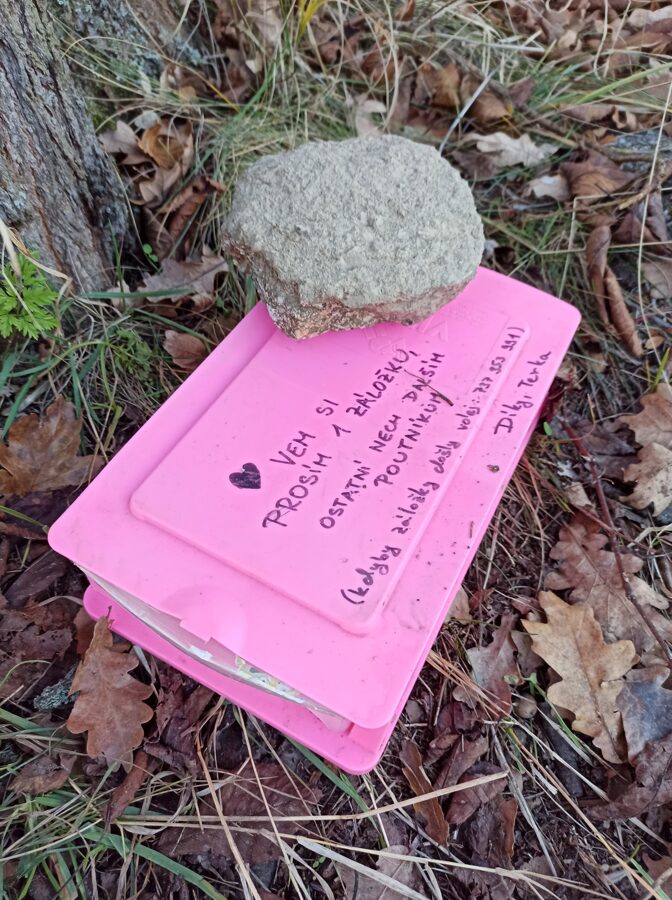 ♥ VEM SI
PROSÍM 1 ZÁLOŽKU,
OSTATNÍ NECH DALŠÍM
POUTNÍKŮM
(kdyby záložky došly volej: 777 353 991)
Díky, Terka